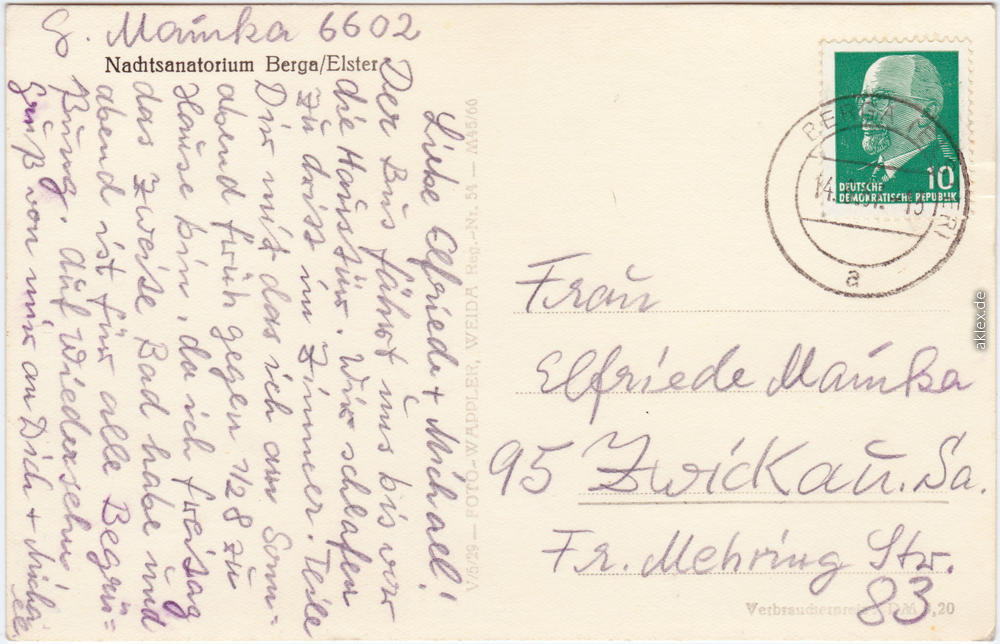 G. Mainka 6602
Nachtsanatorium Berga/Elster
Liebe Elfriede + Michael!
Der Bus fährt uns bis vor
die Haustür. Wir schlafen
zu driss im Zimmer. Teile
Dir mit das ich am Sonn=
abend früh gegen 1/2 8 zu
Hause bin, da ich freitag
das zweite Bad habe und
abend ist für alle Begrü=
ßung. Auf Wiedersehn
Gruß von mir an Dich + Micha
el
V/5/29 — FOTO-WAPPLER, WEIDA Reg.-Nr. 5A — M45/60
10
DEUTSCHE
DEMOKRATISCHE REPUBLIK
BERGA
a
Frau
Elfriede Mainka
95 Zwickau. Sa.
Fr. Mehring Str.
83
Verbraucherpreis DM 0,20
aklex.de